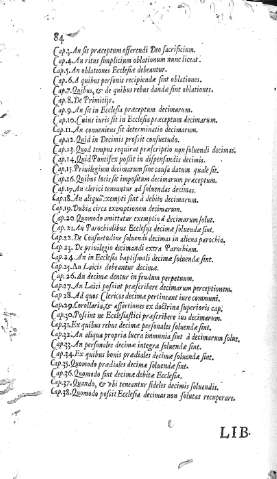 84
Cap.3. An sit præceptum offerendi Deo sacrificium.
Cap.4. An ritus simplicium oblationum nunc liceat.
Cap.5. An oblationes Ecclesiæ debeantur.
Cap.6. A quibus personis recipiendæ sint oblationes.
Cap.7. Quibus, & de quibus rebus dandæ sint oblationes.
Cap.8. De Primitijs.
Cap.9. An sit in Ecclesia præceptum decimarum.
Cap.10. Cuius iuris sit in Ecclesia præceptum decimarum.
Cap.11. An conueniens sit determinatio decimarum.
Cap.12. Quid in Decimis possit consuetudo.
Cap.13. Quod tempus requirat præscriptio non soluendi decimas.
Cap.14. Quid Pontifex possit in dispensandis decimis.
Cap.15. Priuilegium decimarum sine causa datum quale sit.
Cap.16. Quibus locis sit impositum decimarum præceptum.
Cap.17. An clerici teneantur ad soluendas decimas.
Cap.18. An aliqui exempti sint à debito decimarum.
Cap.19. Dubia circa exemptionem decimarum.
Cap.20. Quomodo amittatur exemptio à decimarum solut.
Cap.21. An Parochialibus Ecclesijs decimæ soluendæ sint.
Cap.22. De Consuetudine soluendi decimas in aliena parochia.
Cap.23. De priuilegio decimandi extra Parochiam.
Cap.24. An in Ecclesia baptismali decimæ soluendæ sint.
Cap.25. An Laicis debeantur decimæ.
Cap.26. An decimæ dentur in feudum perpetuum.
Cap.27. An Laici possint præscribere decimarum perceptionem.
Cap.28. Ad quos Clericos decimæ pertineant iure communi.
Cap.29. Corollaria, & assertiones ex doctrina superioris cap.
Cap.30. Possint ne Ecclesiastici præscribere ius decimarum.
Cap.31. Ex quibus rebus decimæ personales soluendæ sint.
Cap.32. An aliqua propria lucra immunia sint à decimarum solut.
Cap.33. An personales decimæ integræ soluendæ sint.
Cap.34. Ex quibus bonis prædiales decimæ soluendæ sint.
Cap.35. Quomodo prædiales decimæ soluendæ sint.
Cap.36. Quomodo sint decimæ debitæ Ecclesiæ.
Cap.37. Quando, & vbi teneantur fideles decimas soluendis.
Cap.38. Quomodo possit Ecclesia decimas non solutas recuperare.
LIB.